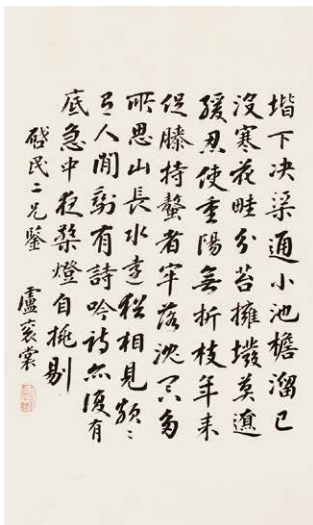 堦下决渠通小池檐溜已
没寒花畦分苔擁墢莫遽
緩忍使重陽無折枝年来
促膝持螯者牢落沈冥多
所思山長水遠稀相見頻〻
人間剳有詩吟詩亦復有
底急中夜檠燈自挑剔
啟民二兄鑒
盧衮裳